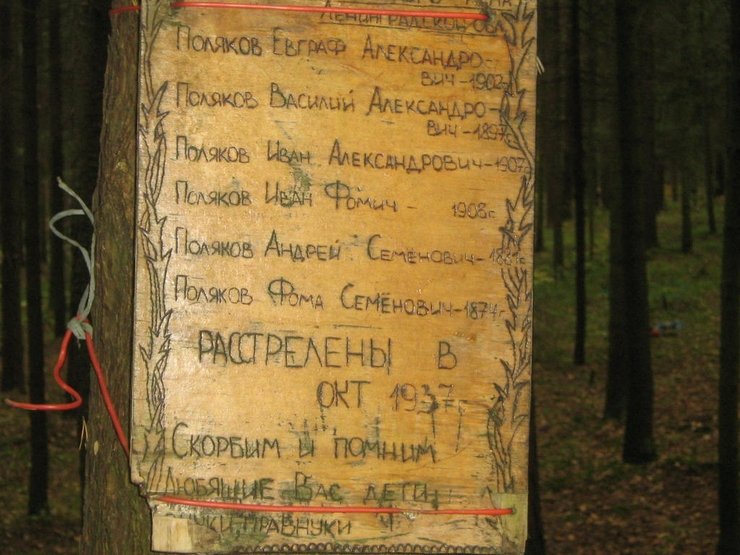 Ленинградской обл
Поляков Евграф Александро-
вич-1902г
Поляков Василий Александро-
вич-1897г
Поляков Иван Александрович-1907г
Поляков Иван Фомич - 1908г
Поляков Андрей Семёнович-
Поляков Фома Семёнович-1874г
РАССТРЕЛЕНЫ В
ОКТ 1937г
Скорбим и помним
Любящие Вас дети
правнуки